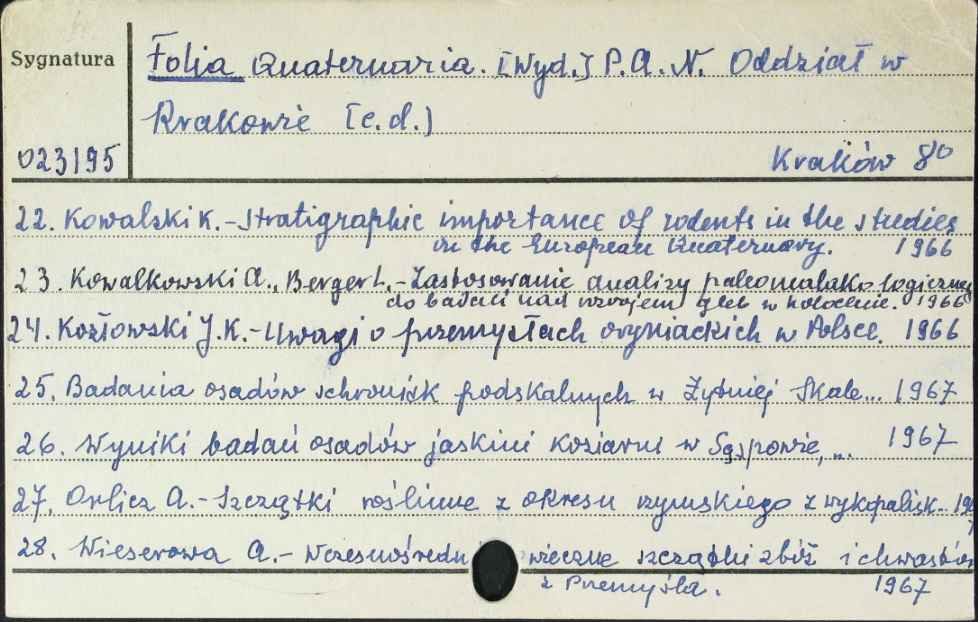 Sygnatura
Folia Quaternaria. [Wyd.] P.A.N. Oddział w
Krakowie [c.d.]
023195
Kraków 8°
22. Kowalski K. - Stratigraphic importance of rodents in the studies
on the European Quaternary. 1966
23. Kowalkowski A., Berger L. - Zastosowanie analizy paleomalakologicznej
do badań nad rozwojem gleb w holocenie. 1966
24. Kozłowski J.K. - Uwagi o przemysłach oryniackich w Polsce. 1966
25. Badania osadów schronisk podskalnych w Żytniej Skale... 1967
26. Wyniki badań osadów jaskini Koziarni w Sąspowie, ... 1967
27. Orlicz A. - Szczątki roślinne z okresu rzymskiego z wykopalisk... 19
28. Wieserowa A. - Wczesnośredniowieczne szczątki zbóż i chwastów
z Przemyśla. 1967